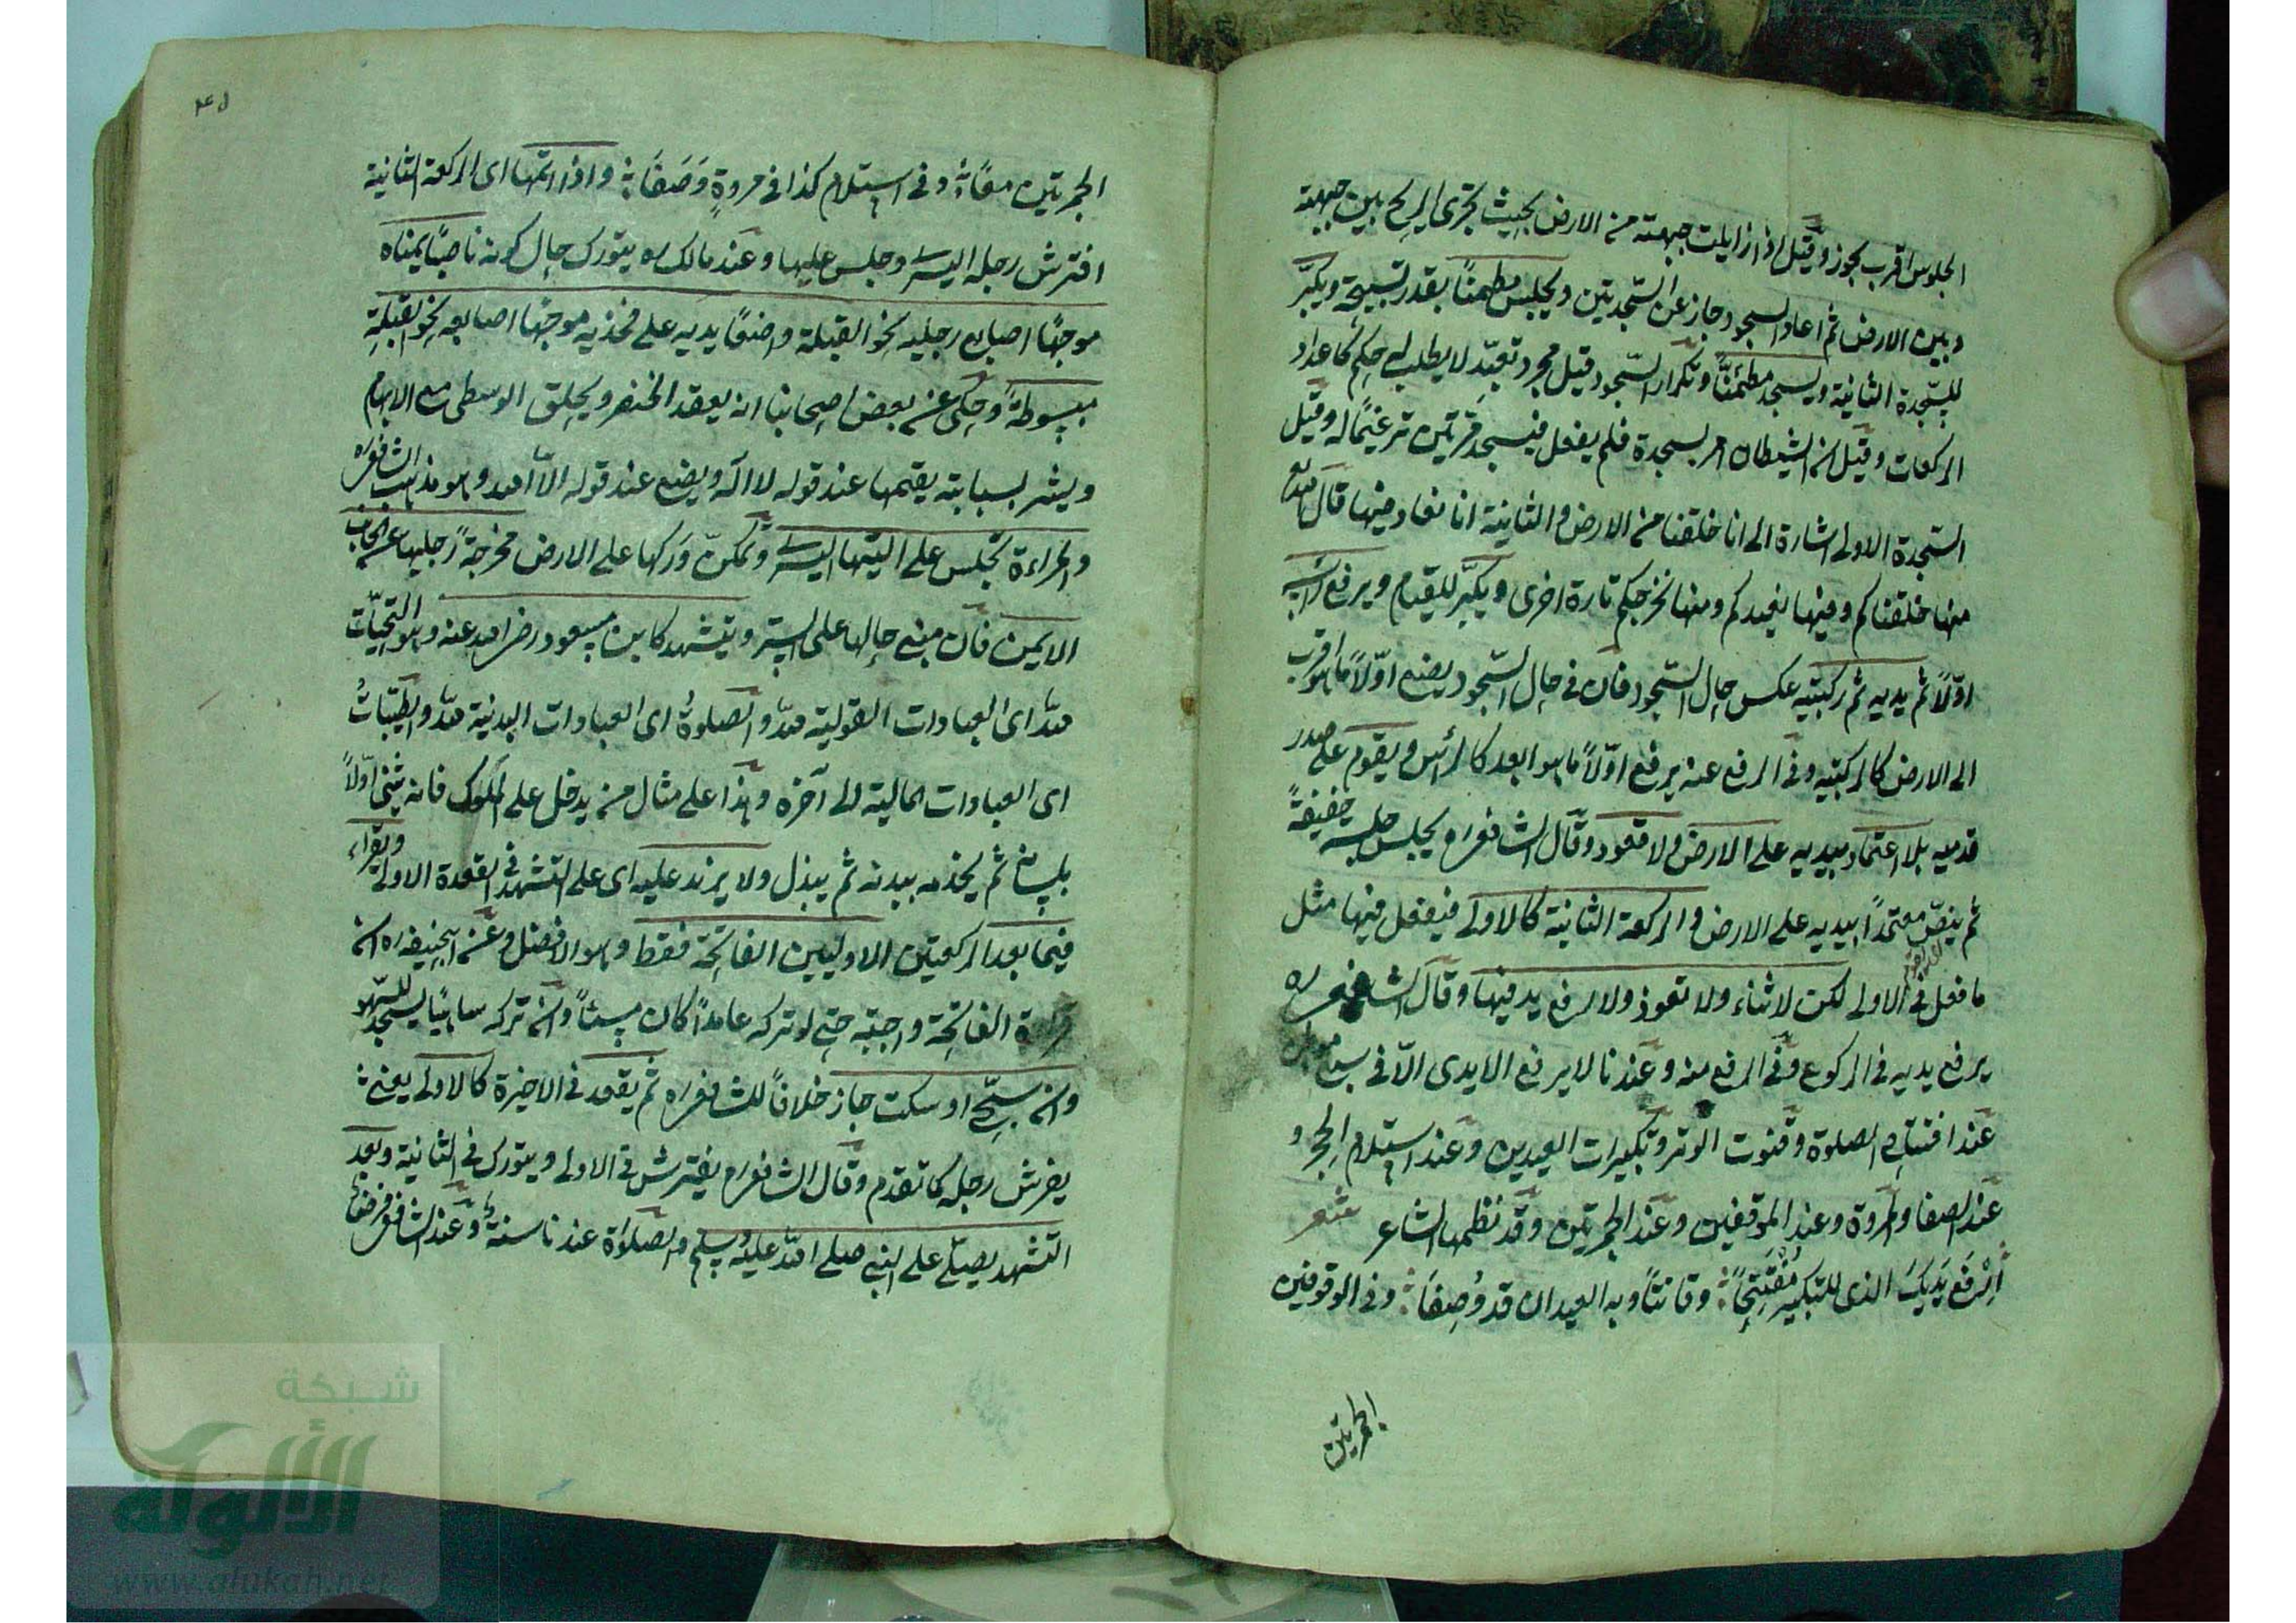 الجلوس اقرب يجوز وقيل اذا زايلت جبهته من الارض بحيث يجرى الريح بين جبهته
وبين الارض ثم اعاد السجود جاز عن السّجدتين ويجلس مطمئنًا بقدر تسبيحة ويكبّر
للسّجدة الثانية ويسجد مطمئنًّا وتكرار السّجود قيل مجرد تعبّد لا يطلب له حكم كاعداد
الركعات وقيل ان الشيطان امر بسجدة فلم يفعل فيسجد مرتين ترغيمًا له وقيل
السّجدة الاولى اشارة الى انا خلقنا من الارض والثانية انا نعاد فيها قال الله تع
منها خلقناكم وفيها نعيدكم ومنها نخرجكم تارة اخرى ويكبّر للقيام ويرفع رأسه
اوّلاً ثم يديه ثم ركبتيه عكس حال السّجود فان فى حال السّجود يضع اوّلاً ما هو اقرب
الى الارض كالركبتيه وفى الرفع عنه يرفع اوّلاً ما هو ابعد كالرأس ويقوم على صدر
قدميه بلا اعتماد بيديه على الارض ولا قعود وقال الشافعى ره يجلس جلسة خفيفةً
ثم ينهض معتمدًا بيديه على الارض والركعة الثانية كالاولى فيفعل فيها مثل
ما فعل فى الاولى لكن لا ثناء ولا تعوذ ولا رفع يد فيها وقال الشافعى ره
يرفع يديه فى الركوع وفى الرفع منه وعندنا لا يرفع الايدى الّا فى سبع مواطن
عند افتتاح الصلوة وقنوت الوتر وتكبيرات العيدين وعند استلام الحجر و
عند الصفا والمروة وعند الموقفين وعند الجمرتين وقد نظمها الشاعر شعر
اِرْفَع يَدَيكَ الذى للتكبير مُفْتَتِحًا وقانتًا وبه العيدان قد وُصِفَا وفى الوقوفين
الجمرتين
٤٥
الجمرتين معًا وفى استلام كذا فى مروةٍ وَصَفَا واذا اتمّها اى الركعة الثانية
افترش رجله اليسرى وجلس عليها وعند مالك ره يتورك حال كونه ناصبًا يمناه
موجهًا اصابع رجليه نحو القبلة واضعًا يديه على فخذيه موجهًا اصابعه نحو القبلة
مبسوطةً وحكى عن بعض اصحابنا انه يعقد الخنصر ويحلق الوسطى مع الابهام
ويشير بسبابته يقيمها عند قوله لا اله ويضع عند قوله الّا الله وهو مذهب الشافعى ره
والمراءة تجلس على اليتها اليسرى وتمكن وَركها على الارض مخرجةً رجليها عن الجانب
الايمن فان مبنى حالها على الستر ويتشهد كابن مسعود رضى الله عنه وهو التحيّات
لله اى العبادات القولية لله والصلوةُ اى العبادات البدنية لله والطيّباتُ
اى العبادات المالية الى آخره وهذا على مثال من يدخل على الملوك فانه يثنى اوّلاً
بلسانه ثم يخدمه ببدنه ثم يبذل ولا يزيد عليه اى على التشهد فى القعدة الاولى ويقراء
فيما بعد الركعتين الاوليين الفاتحة فقط وهو الافضل وعن ابى حنيفة ره ان
قراءة الفاتحة واجبة حتى لو تركه عامدًا كان مسيئًا وان تركه ساهيًا يسجد للسّهو
وان سبّح او سكت جاز خلافًا للشافعى ره ثم يقعد فى الاخيرة كالاولى يعنى
يفرش رجله كما تقدم وقال الشافعى ره يفترش فى الاولى ويتورك فى الثانية وبعد
التشهد يصلّى على النبى صلى الله عليه وسلم والصلاة عندنا سنةٌ وعند الشافعى فرض
شبكة
الألوكة
www.alukah.net